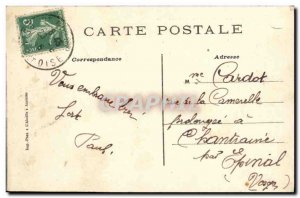 CARTE POSTALE
Correspondance
Adresse
Vous embrasse bien
Fort
Paul.
Mme Cardot
rue de la Camerelle
prolongée à
Chantraine
par Epinal
(Vosges)